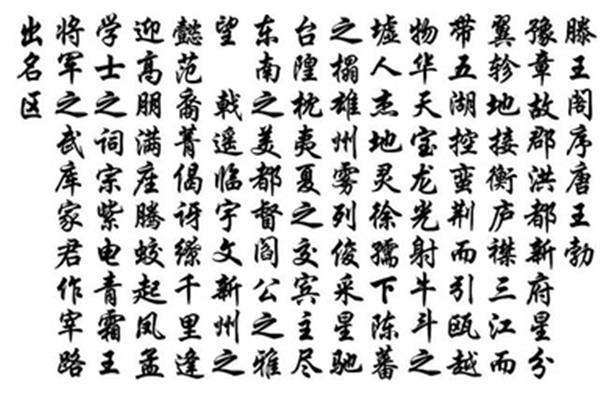 滕王阁序唐王勃
豫章故郡洪都新府星分
翼轸地接衡庐襟三江而
带五湖控蛮荆而引瓯越
物华天宝龙光射牛斗之
墟人杰地灵徐孺下陈蕃
之榻雄州雾列俊采星驰
台隍枕夷夏之交宾主尽
东南之美都督阎公之雅
望 戟遥临宇文新州之
懿范裔菁偈讶缭千里逢
迎高朋满座腾蛟起凤孟
学士之词宗紫电青霜王
将军之武库家君作宰路
出名区